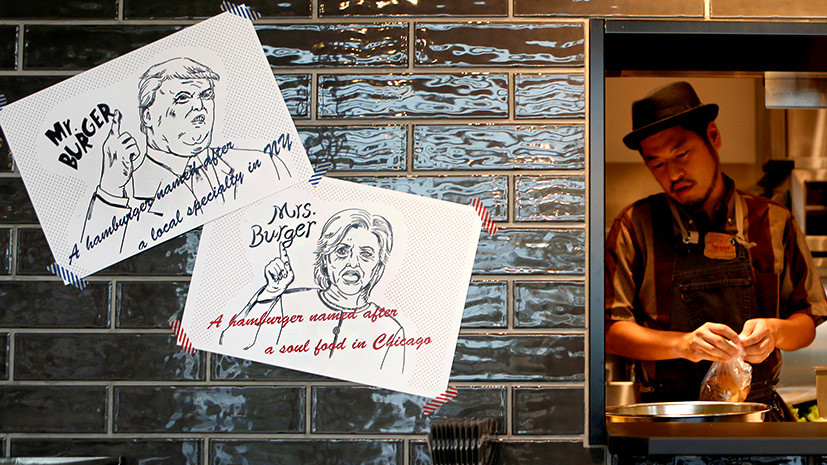 Mr
BURGER
A hamburger named after
a local specialty in NY
Mrs.
Burger
A hamburger named after
a soul food in Chicago